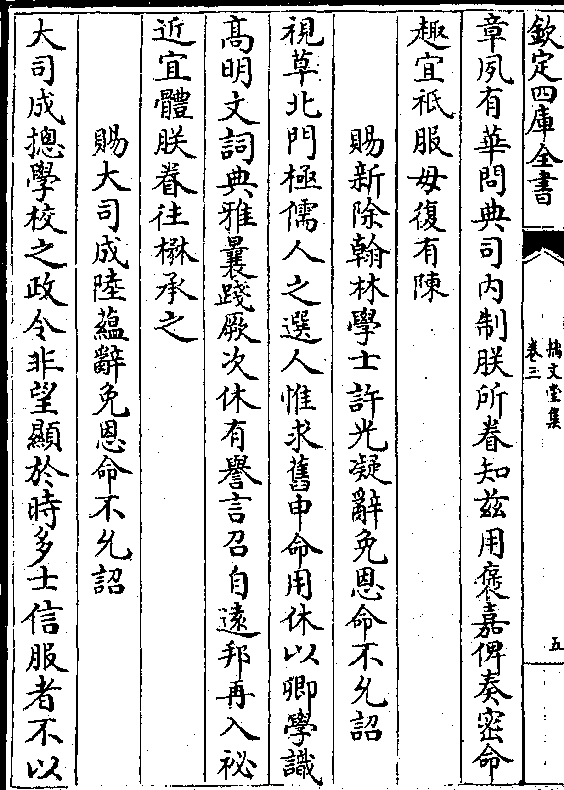 欽定四庫全書
摛文堂集
卷三
五
章夙有華問典司内制朕所眷知兹用褒嘉俾奏密命
趣宜祗服毋復有陳
賜新除翰林學士許光凝辭免恩命不允詔
視草北門極儒人之選人惟求舊申命用休以卿學識
髙明文詞典雅曩踐厥次休有譽言召自遠邦再入祕
近宜體朕眷往楙承之
賜大司成陸藴辭免恩命不允詔
大司成摠學校之政令非望顯於時多士信服者不以